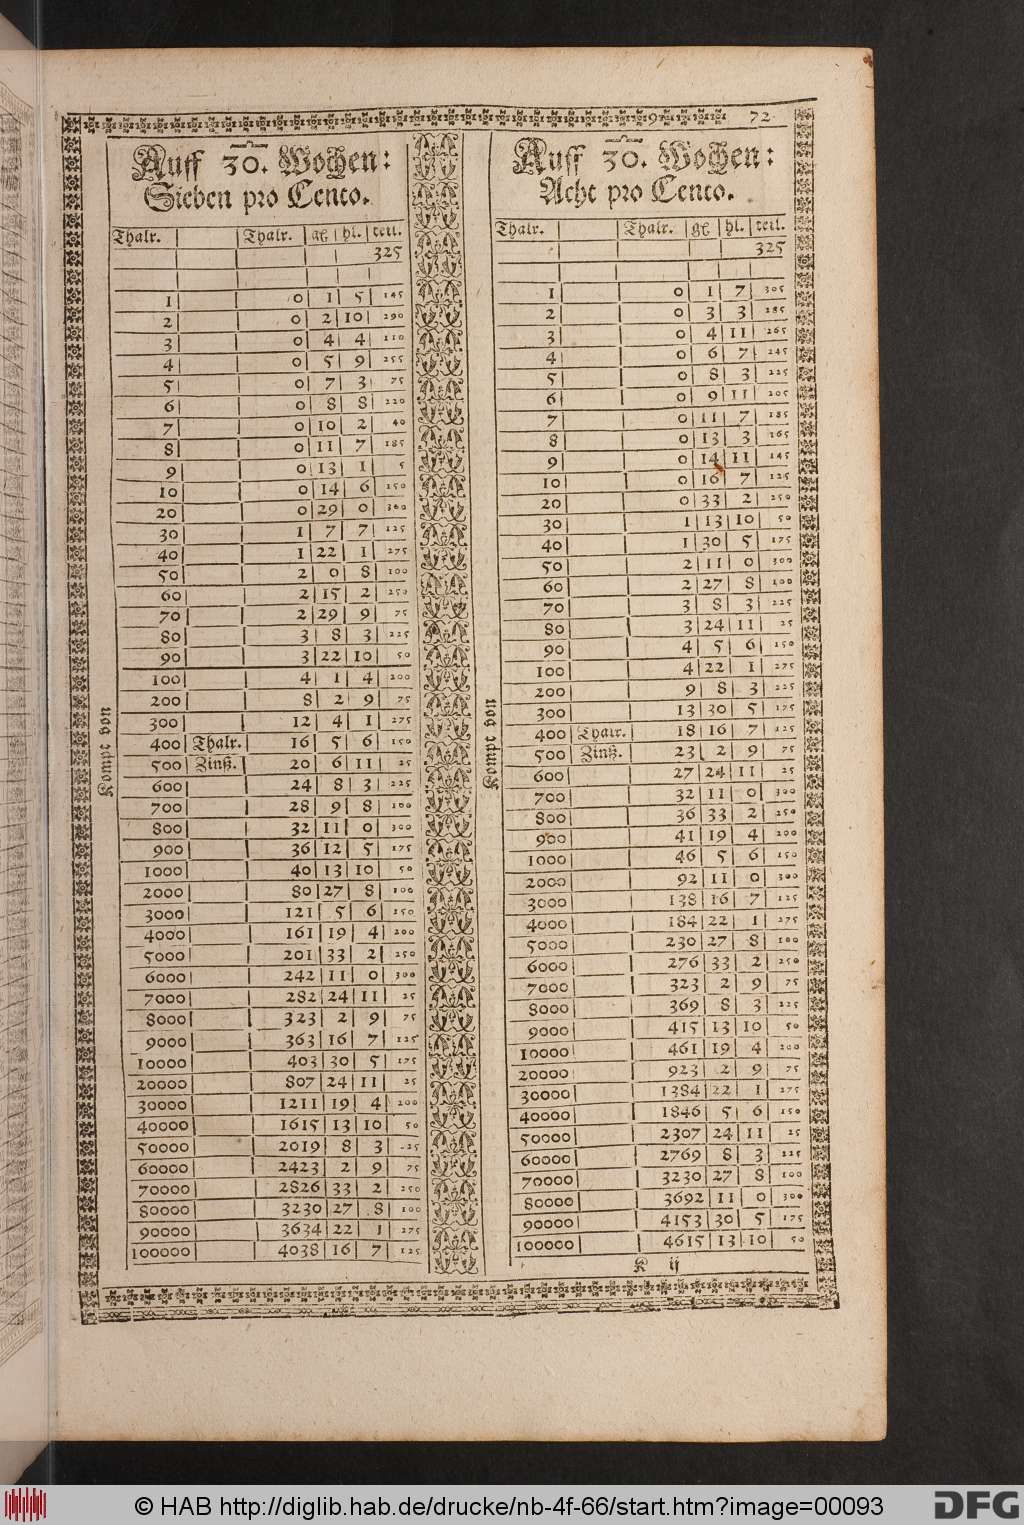 72
Auff 30. Wochen:
Sieben pro Cento.
Thalr. | | Thalr. | gℓ | hl. | teil.
325
1 | | 0 | 1 | 5 | 145
2 | | 0 | 2 | 10 | 290
3 | | 0 | 4 | 4 | 110
4 | | 0 | 5 | 9 | 255
5 | | 0 | 7 | 3 | 75
6 | | 0 | 8 | 8 | 220
7 | | 0 | 10 | 2 | 40
8 | | 0 | 11 | 7 | 185
9 | | 0 | 13 | 1 | 5
10 | | 0 | 14 | 6 | 150
20 | | 0 | 29 | 0 | 300
30 | | 1 | 7 | 7 | 125
40 | | 1 | 22 | 1 | 275
50 | | 2 | 0 | 8 | 100
60 | | 2 | 15 | 2 | 250
70 | | 2 | 29 | 9 | 75
80 | | 3 | 8 | 3 | 225
90 | | 3 | 22 | 10 | 50
100 | | 4 | 1 | 4 | 200
200 | | 8 | 2 | 9 | 75
300 | | 12 | 4 | 1 | 275
400 | Thalr. | 16 | 5 | 6 | 150
500 | Zinß. | 20 | 6 | 11 | 25
600 | | 24 | 8 | 3 | 225
700 | | 28 | 9 | 8 | 100
800 | | 32 | 11 | 0 | 300
900 | | 36 | 12 | 5 | 175
1000 | | 40 | 13 | 10 | 50
2000 | | 80 | 27 | 8 | 100
3000 | | 121 | 5 | 6 | 150
4000 | | 161 | 19 | 4 | 200
5000 | | 201 | 33 | 2 | 250
6000 | | 242 | 11 | 0 | 300
7000 | | 282 | 24 | 11 | 25
8000 | | 323 | 2 | 9 | 75
9000 | | 363 | 16 | 7 | 125
10000 | | 403 | 30 | 5 | 175
20000 | | 807 | 24 | 11 | 25
30000 | | 1211 | 19 | 4 | 200
40000 | | 1615 | 13 | 10 | 50
50000 | | 2019 | 8 | 3 | 225
60000 | | 2423 | 2 | 9 | 75
70000 | | 2826 | 33 | 2 | 250
80000 | | 3230 | 27 | 8 | 100
90000 | | 3634 | 22 | 1 | 275
100000 | | 4038 | 16 | 7 | 125
Kompt von
Auff 30. Wochen:
Acht pro Cento.
Thalr. | | Thalr. | gℓ | hl. | teil.
325
1 | | 0 | 1 | 7 | 305
2 | | 0 | 3 | 3 | 285
3 | | 0 | 4 | 11 | 265
4 | | 0 | 6 | 7 | 245
5 | | 0 | 8 | 3 | 225
6 | | 0 | 9 | 11 | 205
7 | | 0 | 11 | 7 | 185
8 | | 0 | 13 | 3 | 165
9 | | 0 | 14 | 11 | 145
10 | | 0 | 16 | 7 | 125
20 | | 0 | 33 | 2 | 250
30 | | 1 | 13 | 10 | 50
40 | | 1 | 30 | 5 | 175
50 | | 2 | 11 | 0 | 300
60 | | 2 | 27 | 8 | 100
70 | | 3 | 8 | 3 | 225
80 | | 3 | 24 | 11 | 25
90 | | 4 | 5 | 6 | 150
100 | | 4 | 22 | 1 | 275
200 | | 9 | 8 | 3 | 225
300 | | 13 | 30 | 5 | 175
400 | Thalr. | 18 | 16 | 7 | 125
500 | Zinß. | 23 | 2 | 9 | 75
600 | | 27 | 24 | 11 | 25
700 | | 32 | 11 | 0 | 300
800 | | 36 | 33 | 2 | 250
900 | | 41 | 19 | 4 | 200
1000 | | 46 | 5 | 6 | 150
2000 | | 92 | 11 | 0 | 300
3000 | | 138 | 16 | 7 | 125
4000 | | 184 | 22 | 1 | 275
5000 | | 230 | 27 | 8 | 100
6000 | | 276 | 33 | 2 | 250
7000 | | 323 | 2 | 9 | 75
8000 | | 369 | 8 | 3 | 225
9000 | | 415 | 13 | 10 | 50
10000 | | 461 | 19 | 4 | 200
20000 | | 923 | 2 | 9 | 75
30000 | | 1384 | 22 | 1 | 275
40000 | | 1846 | 5 | 6 | 150
50000 | | 2307 | 24 | 11 | 25
60000 | | 2769 | 8 | 3 | 225
70000 | | 3230 | 27 | 8 | 100
80000 | | 3692 | 11 | 0 | 300
90000 | | 4153 | 30 | 5 | 175
100000 | | 4615 | 13 | 10 | 50
Kompt von
K ij
© HAB http://diglib.hab.de/drucke/nb-4f-66/start.htm?image=00093
DFG